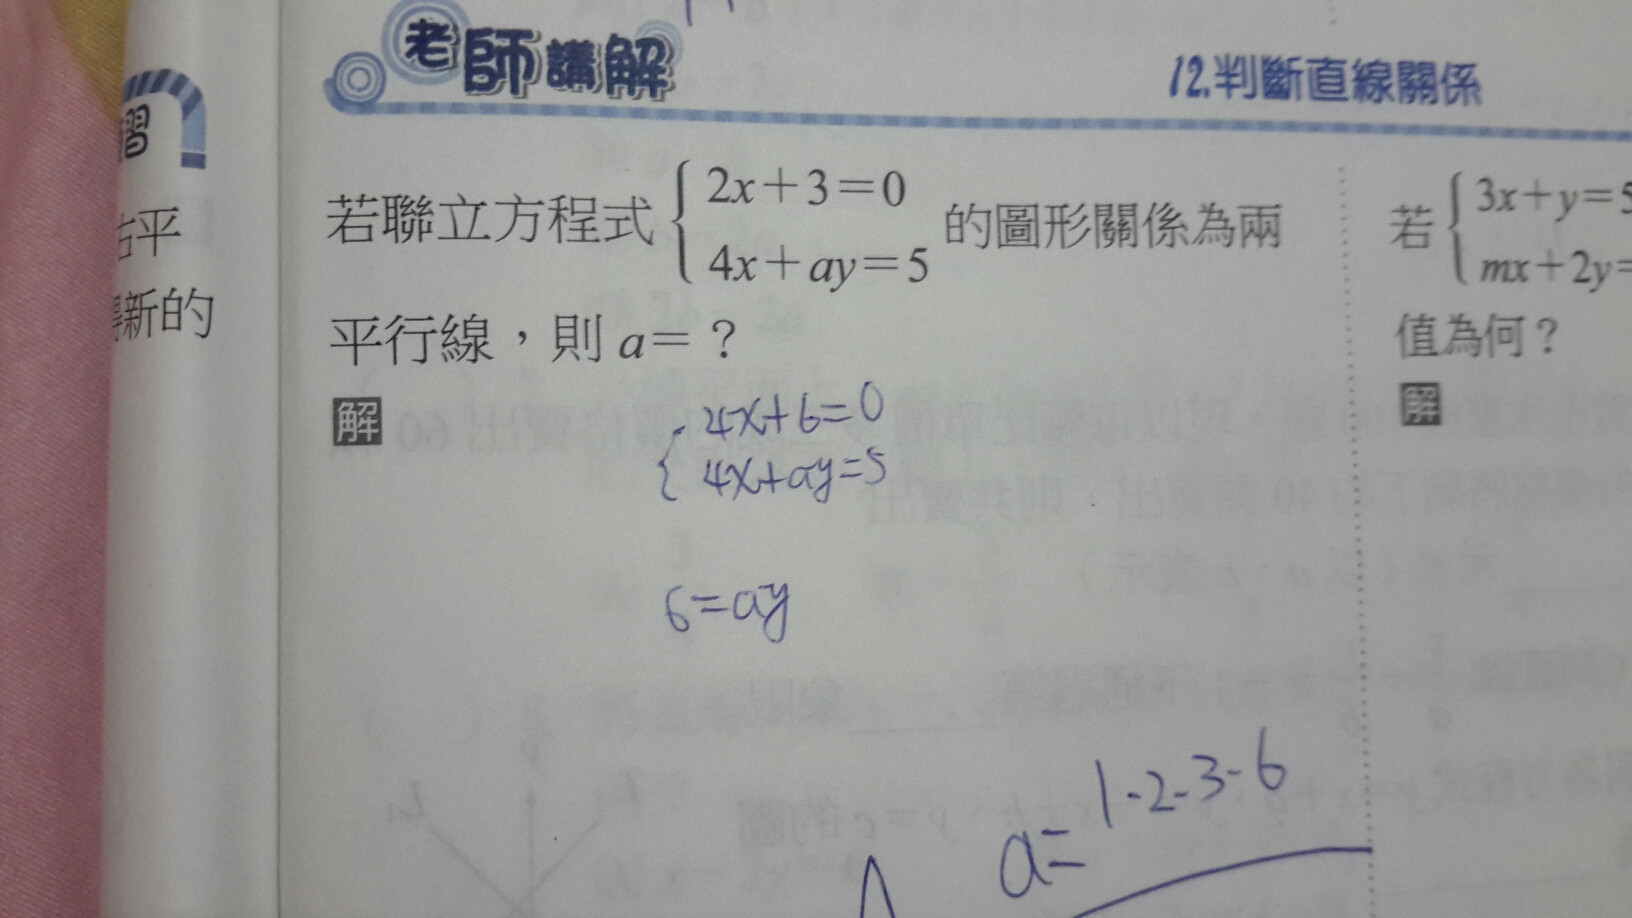 老師講解
12.判斷直線關係
習
右平
得新的
若聯立方程式 { 2x+3=0
4x+ay=5 的圖形關係為兩
平行線，則 a=？
解
{ 4x+6=0
4x+ay=5
6=ay
a= 1-2-3-6
若 { 3x+y=5
mx+2y=
值為何？
解